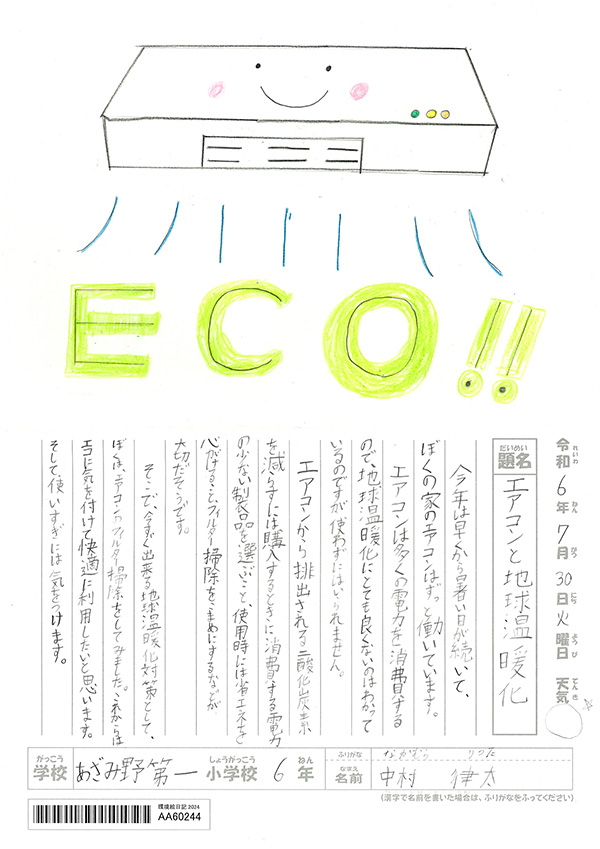 ECO!!
令和6年7月30日火曜日 天気
れいわ ねん がつ にち ようび てんき
だいめい
題名 エアコンと地球温暖化
今年は早くから暑い日が続いて、
ぼくの家のエアコンはずっと働いています。
エアコンは多くの電力を消費する
ので、地球温暖化にとても良くないのはわかって
いるのですが、使わずにはいられません。
エアコンから排出される二酸化炭素
を減らすには購入するときに、消費する電力
の少ない製品を選ぶこと、使用時には省エネを
心がけること、フィルター掃除をこまめにするなどが
大切だそうです。
そこで、今すぐ出来る地球温暖化対策として、
ぼくは、エアコンのフィルター掃除をしてみました。これからは
エコに気を付けて快適に利用したいと思います。
そして、使いすぎには気をつけます。
がっこう しょうがっこう ねん
学校 あざみ野第一小学校 6年
ふりがな なかむら りつた
なまえ
名前 中村 律太
(漢字で名前を書いた場合は、ふりがなをふってください)
環境絵日記2024
AA60244